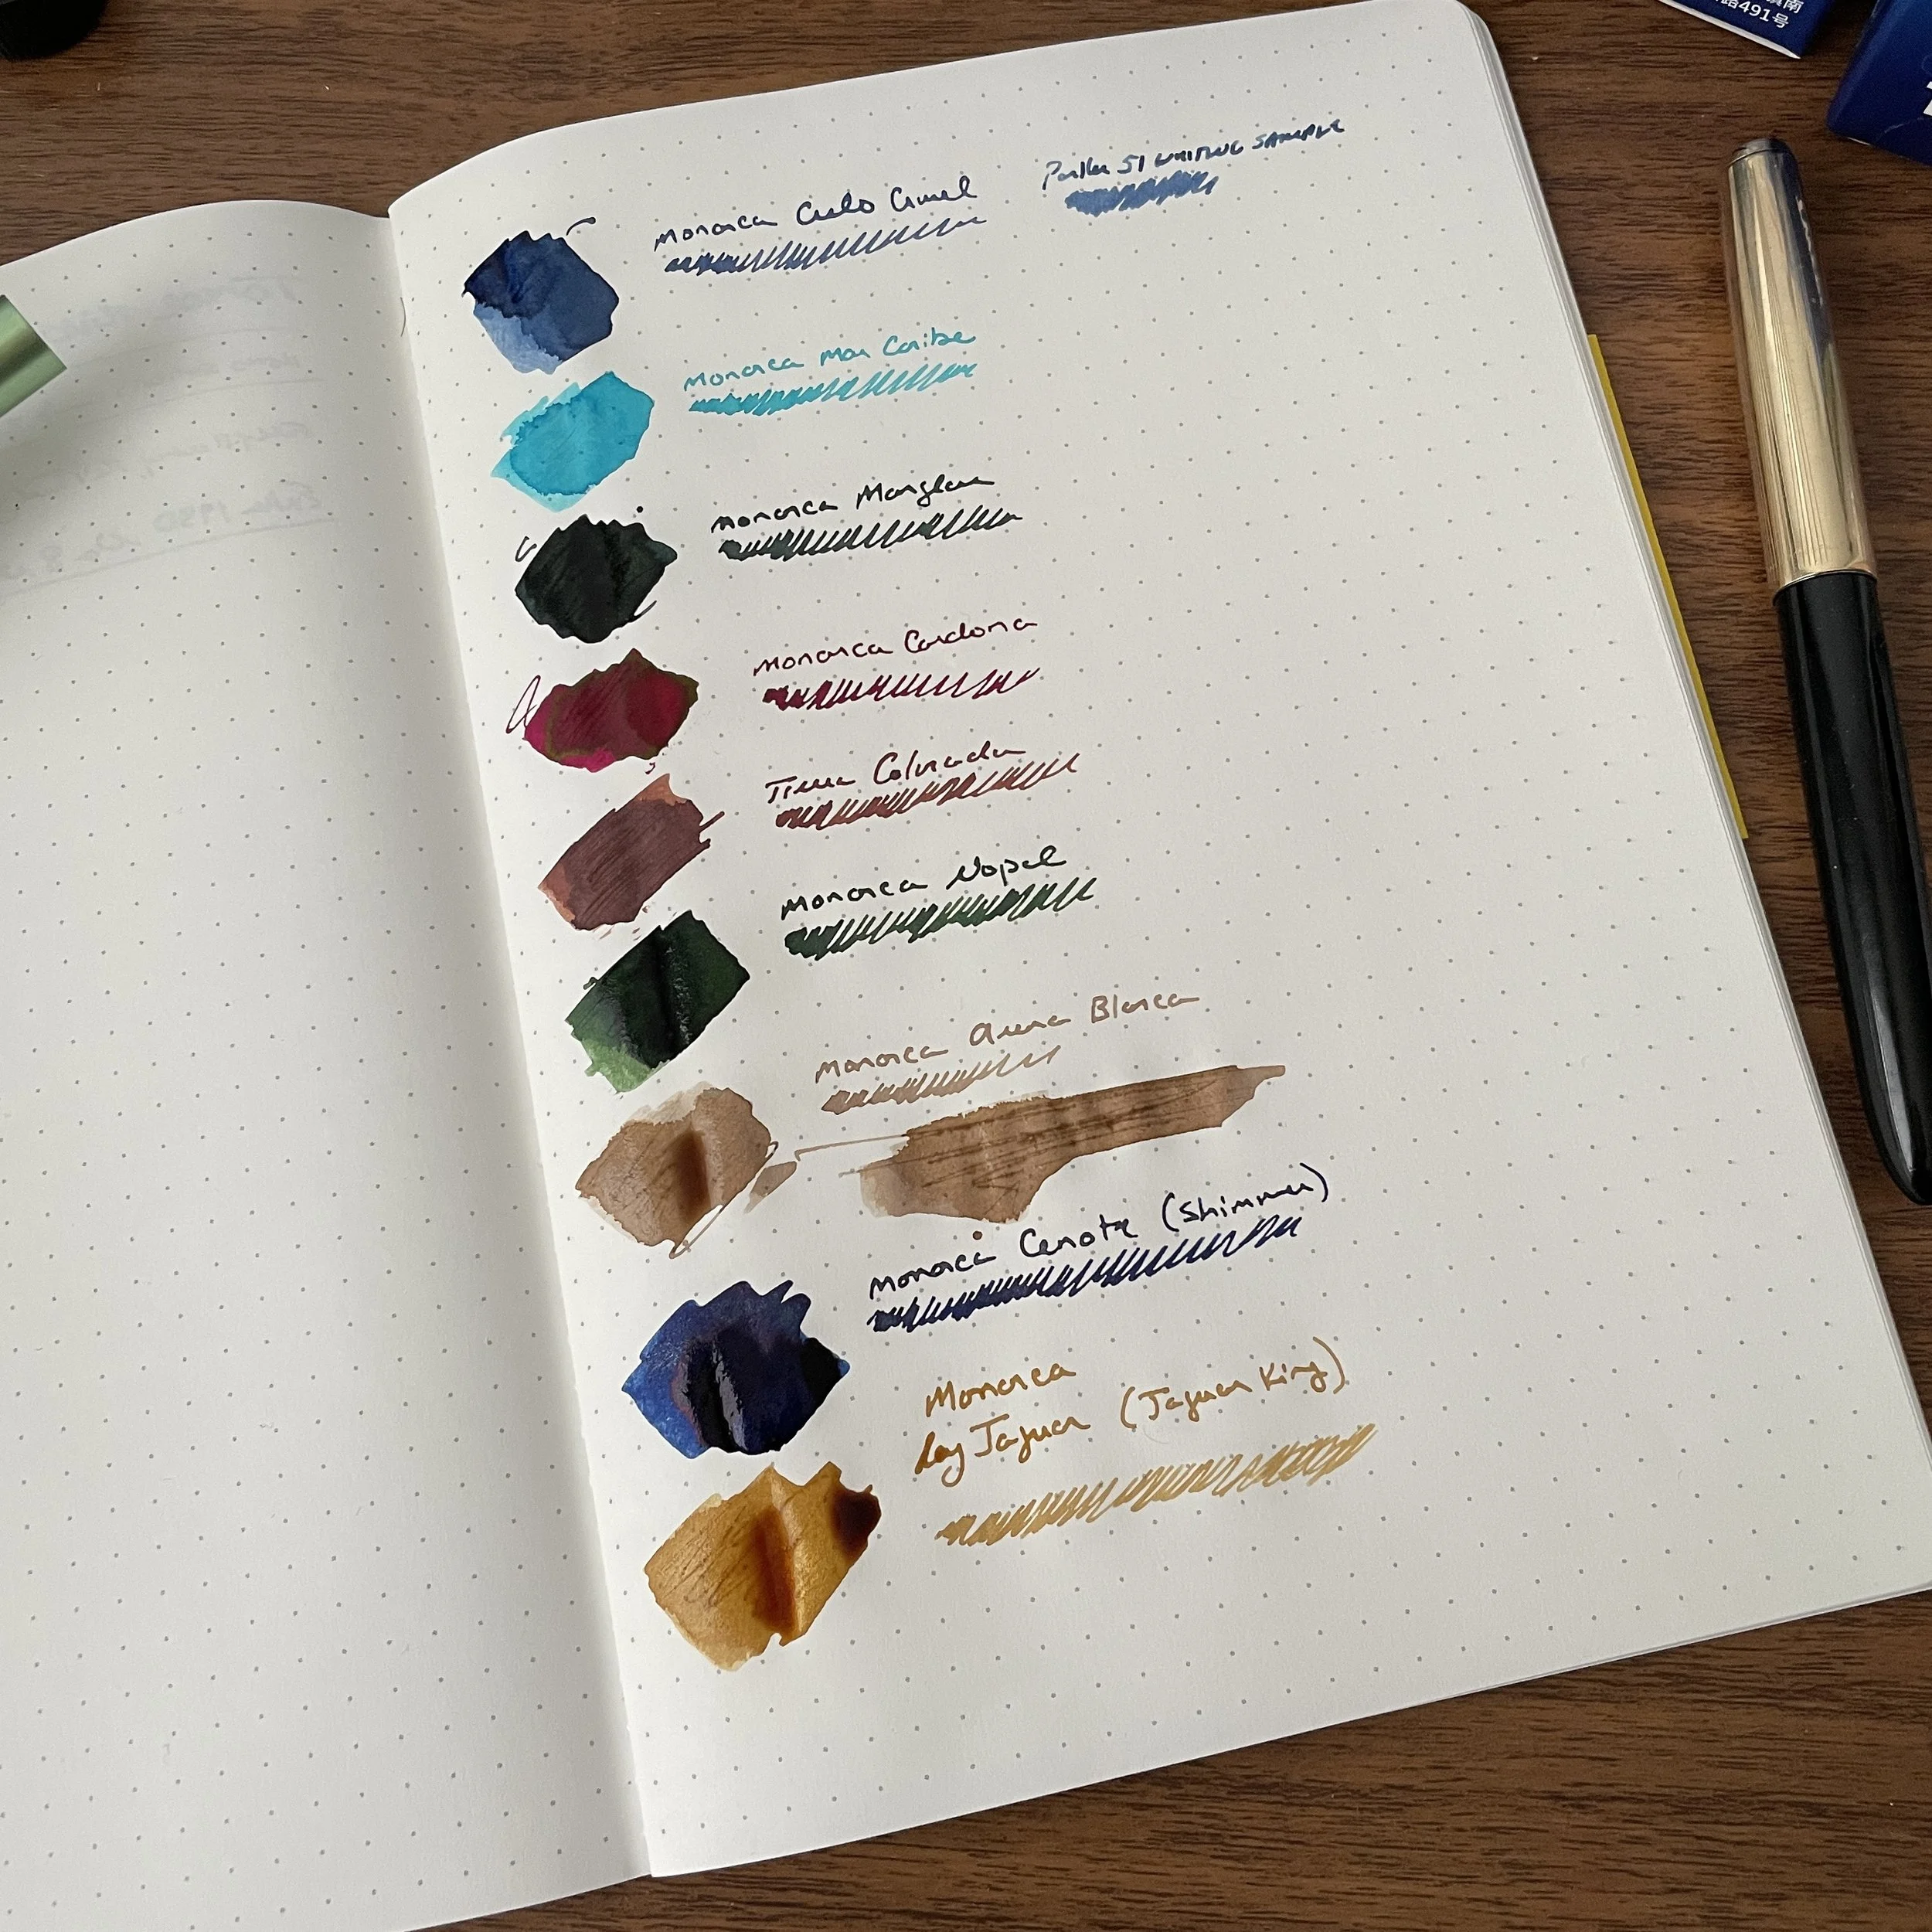 南
路491号
Parker 51 WRITING SAMPLE
Monarca Cielo Cruel
Monarca Mar Caribe
Monarca Manglar
Monarca Cardona
Tierra Colorada
Monarca Nopal
Monarca Arena Blanca
Monarca Cenote (Shimmer)
Monarca
Rey Jaguar (Jaguar King)